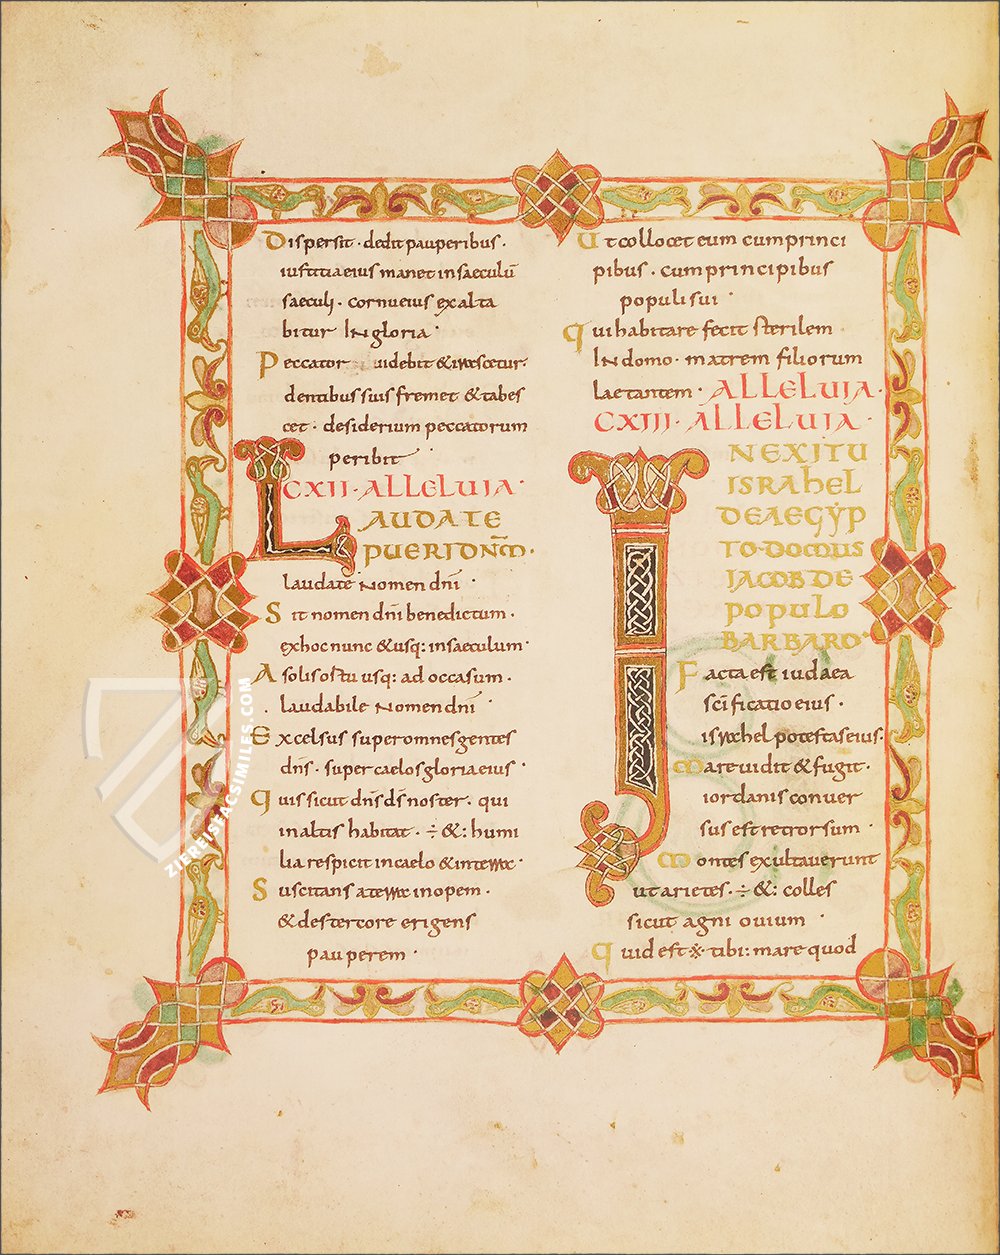 Dispersit · dedit pauperibus ·
iustitia eius manet in saeculū
saeculi · cornu eius exalta
bitur In gloria ·
Peccator videbit & irascetur ·
dentibus suis fremet & tabes
cet · desiderium peccatorum
peribit
CXII · ALLELUIA ·
LAUDATE
PUERI DN̄M ·
laudate Nomen dn̄i ·
Sit nomen dn̄i benedictum ·
ex hoc nunc & usq: in saeculum ·
A solis ostu usq: ad occasum ·
laudabile Nomen dn̄i ·
Excelsus super omnes gentes
dn̄s · super caelos gloria eius ·
Quis sicut dn̄s ds̄ noster · qui
in altis habitat · ÷ &: humi
lia respicit in caelo & in terra ·
Suscitans a terra inopem ·
& de stercore erigens
pauperem ·
Ut collocet eum cum princi
pibus · cum principibus
populi sui ·
Qui habitare fecit sterilem ·
In domo · matrem filiorum
laetantem · ALLELUIA ·
CXIII · ALLELUIA ·
IN EXITU
ISRAHEL
DE AEGYP
TO · DOMUS
JACOB DE
POPULO
BARBARO ·
Facta est iudaea
scīficatio eius ·
israhel potestas eius ·
Mare vidit & fugit ·
iordanis conver
sus est retrorsum ·
Montes exultaverunt
ut arietes · ÷ &: colles
sicut agni ovium ·
Quid est ※ tibi: mare quod
ZIEREISFACSIMILES.COM